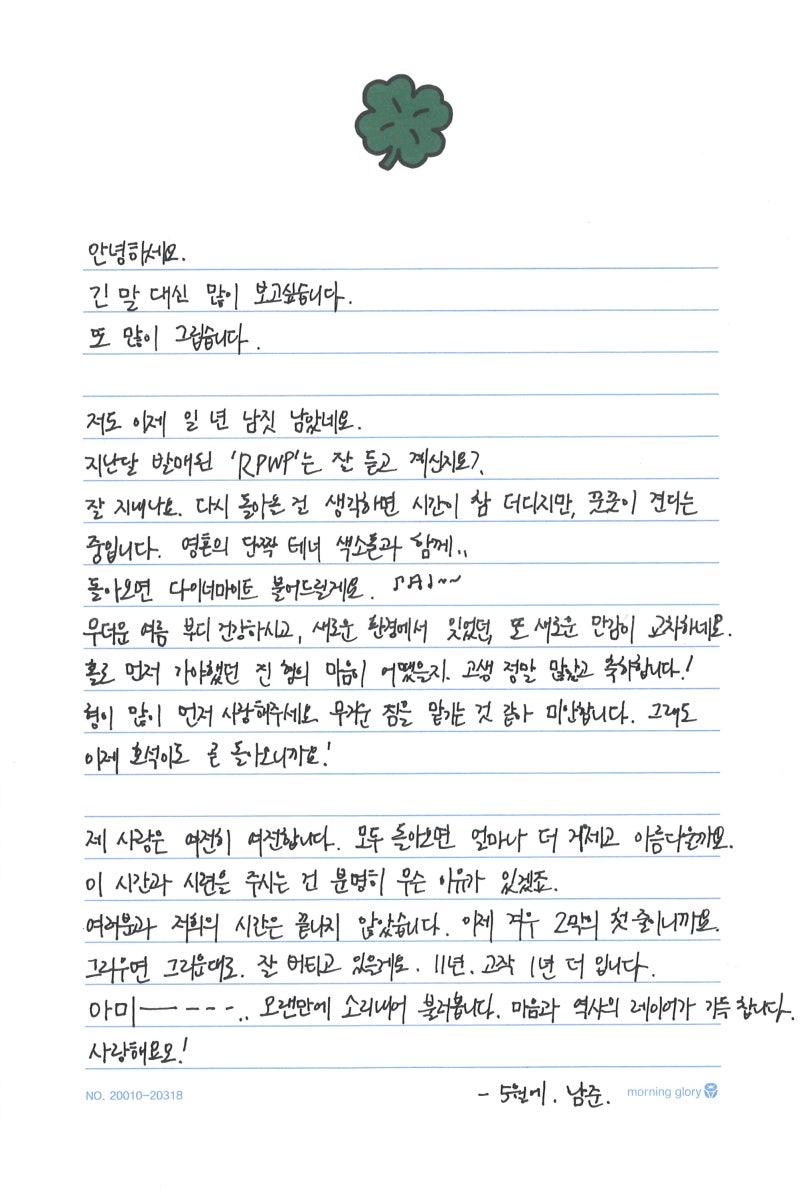 안녕하세요.
긴 말 대신 많이 보고싶습니다.
또 많이 그립습니다.
저도 이제 일 년 남짓 남았네요.
지난달 발매된 'RPWP'는 잘 듣고 계신지요?
잘 지내나요. 다시 돌아올 건 생각하면 시간이 참 더디지만, 꿋꿋이 견디는
중입니다. 영혼의 단짝 테너 색소폰과 함께..
돌아오면 다이너마이트 불어드릴게요. ♪♬♩~~
무더운 여름 부디 건강하시고, 새로운 환경에서 잊었던, 또 새로운 만감이 교차하네요.
홀로 먼저 가야했던 진 형의 마음이 어땠을지. 고생 정말 많았고 축하합니다!
형이 많이 먼저 사랑해주세요. 무거운 짐을 맡기는 것 같아 미안합니다. 그래도
이제 호석이도 곧 돌아오니까요!
제 사랑은 여전히 여전합니다. 모두 돌아오면 얼마나 더 거세고 아름다울까요.
이 시간과 시련을 주시는 건 분명히 무슨 이유가 있겠죠.
여러분과 저희의 시간은 끝나지 않았습니다. 이제 겨우 2막의 첫 줄이니까요.
그리우면 그리운대로. 잘 버티고 있을게요. 11년. 고작 1년 더 입니다.
아미―――---.. 오랜만에 소리내어 불러봅니다. 마음과 역사의 레이어가 가득 찹니다.
사랑해요오!
- 5월에. 남준.
NO. 20010-20318
morning glory